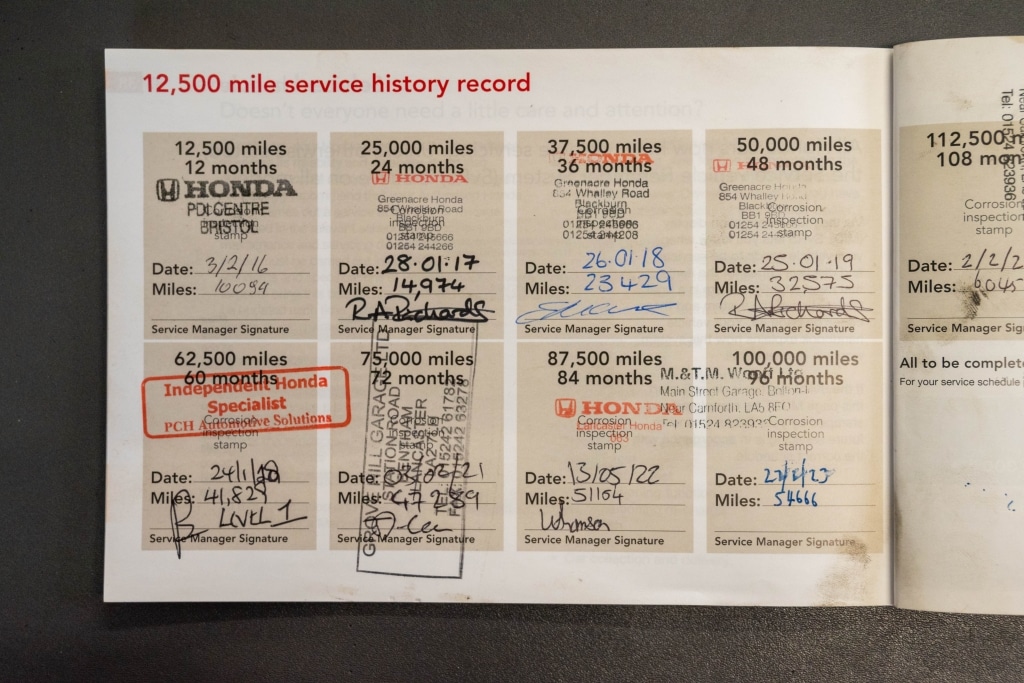 12,500 mile service history record
12,500 miles
12 months
HONDA
PDI CENTRE
BRISTOL
Corrosion
inspection
stamp
Date: 3/2/16
Miles: 10094
Service Manager Signature
25,000 miles
24 months
HONDA
Greenacre Honda
854 Whalley Road
Blackburn
BB1 9BD
Corrosion
inspection
stamp
01254 244266
Date: 28.01.17
Miles: 14,974
R A Richards
Service Manager Signature
37,500 miles
36 months
HONDA
Greenacre Honda
854 Whalley Road
Blackburn
Corrosion
inspection
stamp
Date: 26.01.18
Miles: 23429
Service Manager Signature
50,000 miles
48 months
Greenacre Honda
854 Whalley Road
Blackburn
BB1 9BD
Corrosion
inspection
stamp
Date: 25.01.19
Miles: 32575
R A Richards
Service Manager Signature
62,500 miles
60 months
Independent Honda
Specialist
PCH Automotive Solutions
Corrosion
inspection
stamp
Date: 24/1/
Miles: 41,82
LEVEL 1
Service Manager Signature
75,000 miles
72 months
GARAGE LTD
STATION ROAD
BENTHAM
LANCASTER
Date:
Miles:
Service Manager Signature
87,500 miles
84 months
HONDA
Lancaster Honda
Corrosion
inspection
stamp
Date: 13/05/22
Miles: 51104
Service Manager Signature
100,000 miles
96 months
M.&T.M.
Main Street Garage,
Near Carnforth, LA5
Tel: 01524
Corrosion
inspection
stamp
Date:
Miles: 54666
Service Manager Signature
112,500
108
Corrosion
inspection
stamp
Date: 2/2/2
Miles:
Service Manager Sig
Tel: 01524
All to be complete
For your service schedule